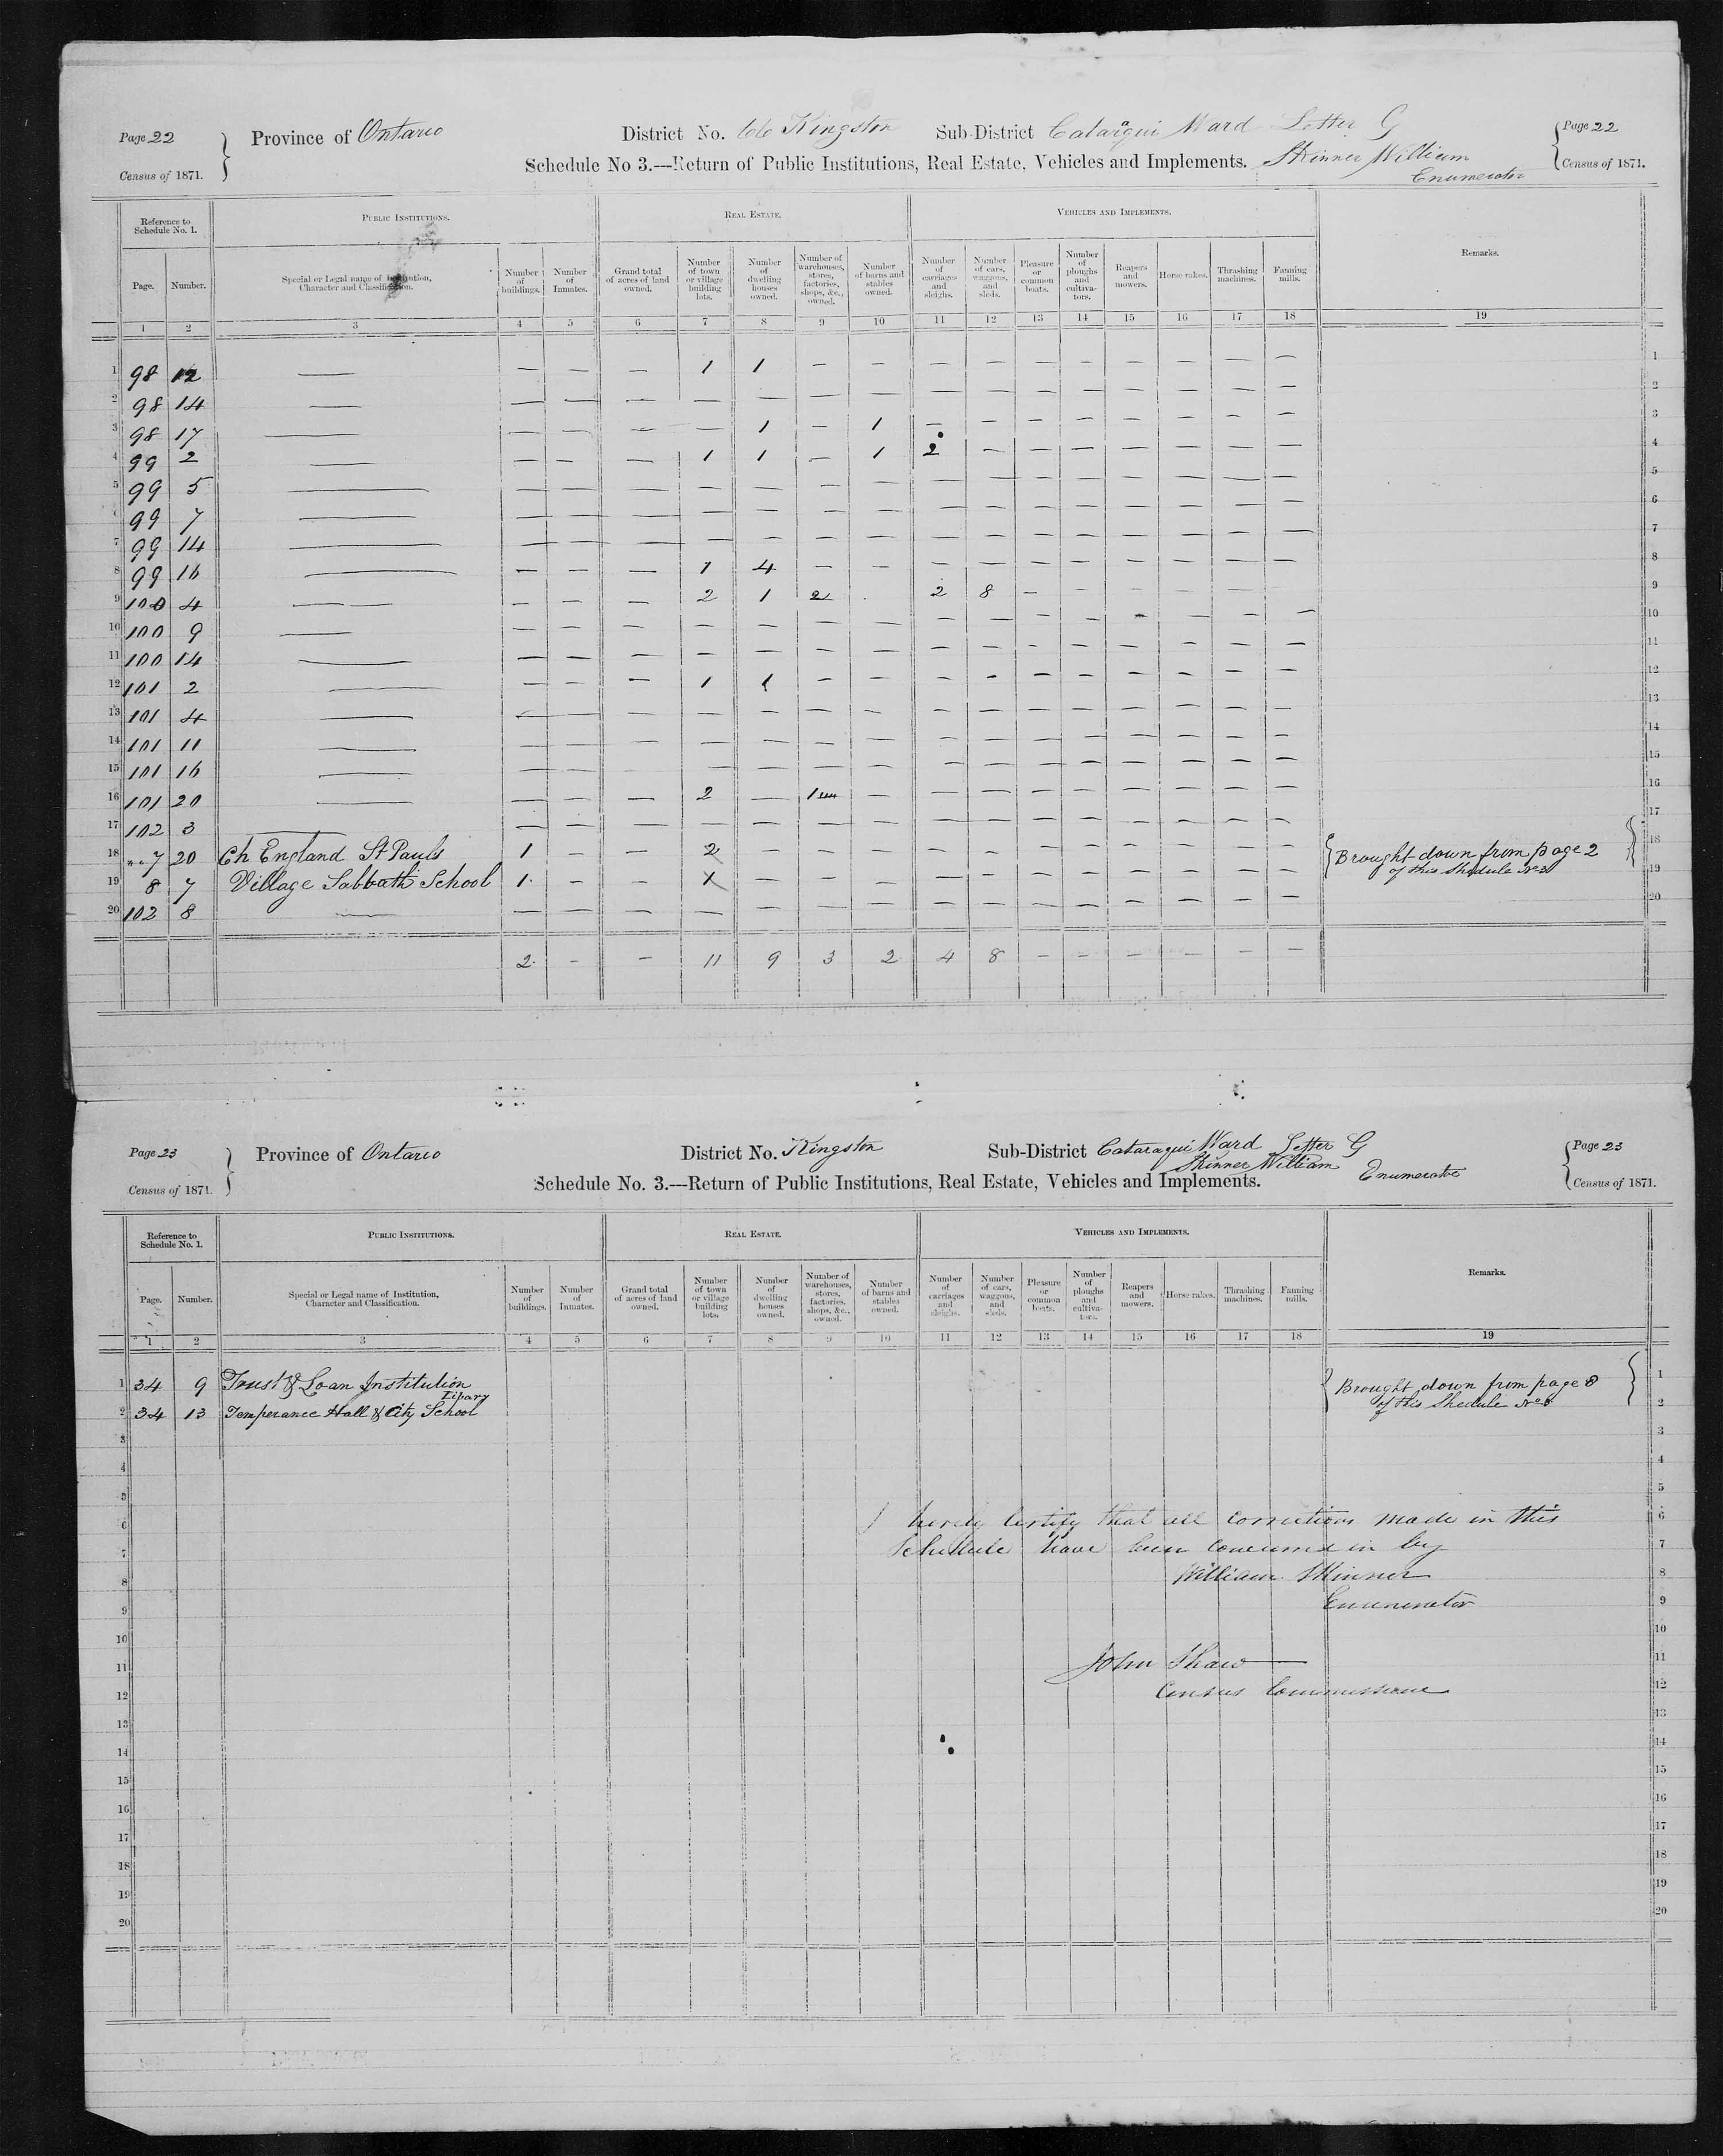 Page 22 Province of Ontario District No. 66 Kingston Sub-District Cataraqui Ward Letter G Page 22
Census of 1871. Schedule No 3.—Return of Public Institutions, Real Estate, Vehicles and Implements. Skinner William Census of 1871.
Enumerator
Reference to Schedule No. 1. PUBLIC INSTITUTIONS. REAL ESTATE. VEHICLES AND IMPLEMENTS. Remarks.
Page. Number. Special or Legal name of Institution, Character and Classification. Number of buildings. Number of Inmates. Grand total of acres of land owned. Number of town or village building lots. Number of dwelling houses owned. Number of warehouses, stores, factories, shops, &c., owned. Number of barns and stables owned. Number of carriages and sleighs. Number of cars, waggons, and sleds. Pleasure or common boats. Number of ploughs and cultiva-tors. Reapers and mowers. Horse rakes. Thrashing machines. Fanning mills.
1 2 3 4 5 6 7 8 9 10 11 12 13 14 15 16 17 18 19
1 98 12 — — — — 1 1 — — — — — — — — — — 1
2 98 14 — — — — — — — — — — — — — — — — 2
3 98 17 — — — — — 1 — 1 — — — — — — — — 3
4 99 2 — — — — 1 1 — 1 2 — — — — — — — 4
5 99 5 — — — — — — — — — — — — — — — — 5
6 99 7 — — — — — — — — — — — — — — — — 6
7 99 14 — — — — — — — — — — — — — — — — 7
8 99 16 — — — — 1 4 — — — — — — — — — — 8
9 100 4 — — — — — 2 1 2 2 8 — — — — — 9
10 100 9 — — — — — — — — — — — — — — — — 10
11 100 14 — — — — — — — — — — — — — — — — 11
12 101 2 — — — — 1 1 — — — — — — — — — — 12
13 101 4 — — — — — — — — — — — — — — — — 13
14 101 11 — — — — — — — — — — — — — — — — 14
15 101 16 — — — — — — — — — — — — — — — 15
16 101 20 — — — — 2 — 1 — — — — — — — — — 16
17 102 3 — — — — — — — — — — — — — — — — 17
18 7 20 Ch England St Pauls 1 — — 2 — — — — — — — — — — — Brought down from page 2 18
19 8 7 Village Sabbath School 1 — — 1 — — — — — — — — — — — of this Shedule No 3 19
20 102 8 — — — — — — — — — — — — — — — — 20
2 — — 11 9 3 2 4 8 — — — — — —
Page 23 Province of Ontario District No. Kingston Sub-District Cataraqui Ward Letter G Page 23
Skinner William Enumerator
Census of 1871. Schedule No. 3.—Return of Public Institutions, Real Estate, Vehicles and Implements. Census of 1871.
Reference to Schedule No. 1. PUBLIC INSTITUTIONS. REAL ESTATE. VEHICLES AND IMPLEMENTS. Remarks.
Page. Number. Special or Legal name of Institution, Character and Classification. Number of buildings. Number of Inmates. Grand total of acres of land owned. Number of town or village building lots. Number of dwelling houses owned. Number of warehouses, stores, factories, shops, &c., owned. Number of barns and stables owned. Number of carriages and sleighs. Number of cars, waggons, and sleds. Pleasure or common boats. Number of ploughs and cultiva-tors. Reapers and mowers. Horse rakes. Thrashing machines. Fanning mills.
1 2 3 4 5 6 7 8 9 10 11 12 13 14 15 16 17 18 19
1 34 9 Trust & Loan Institution Brought down from page 8 1
Libary
2 34 13 Temperance Hall & City School of this Shedule No 3 2
3 3
4 4
5 5
6 I hereby Certify that all Corrections made in this 6
7 Schedule have been concurred in by 7
8 William Skinner 8
9 Enumerator 9
10 10
11 John Shaw 11
12 Census Commissioner 12
13 13
14 14
15 15
16 16
17 17
18 18
19 19
20 20